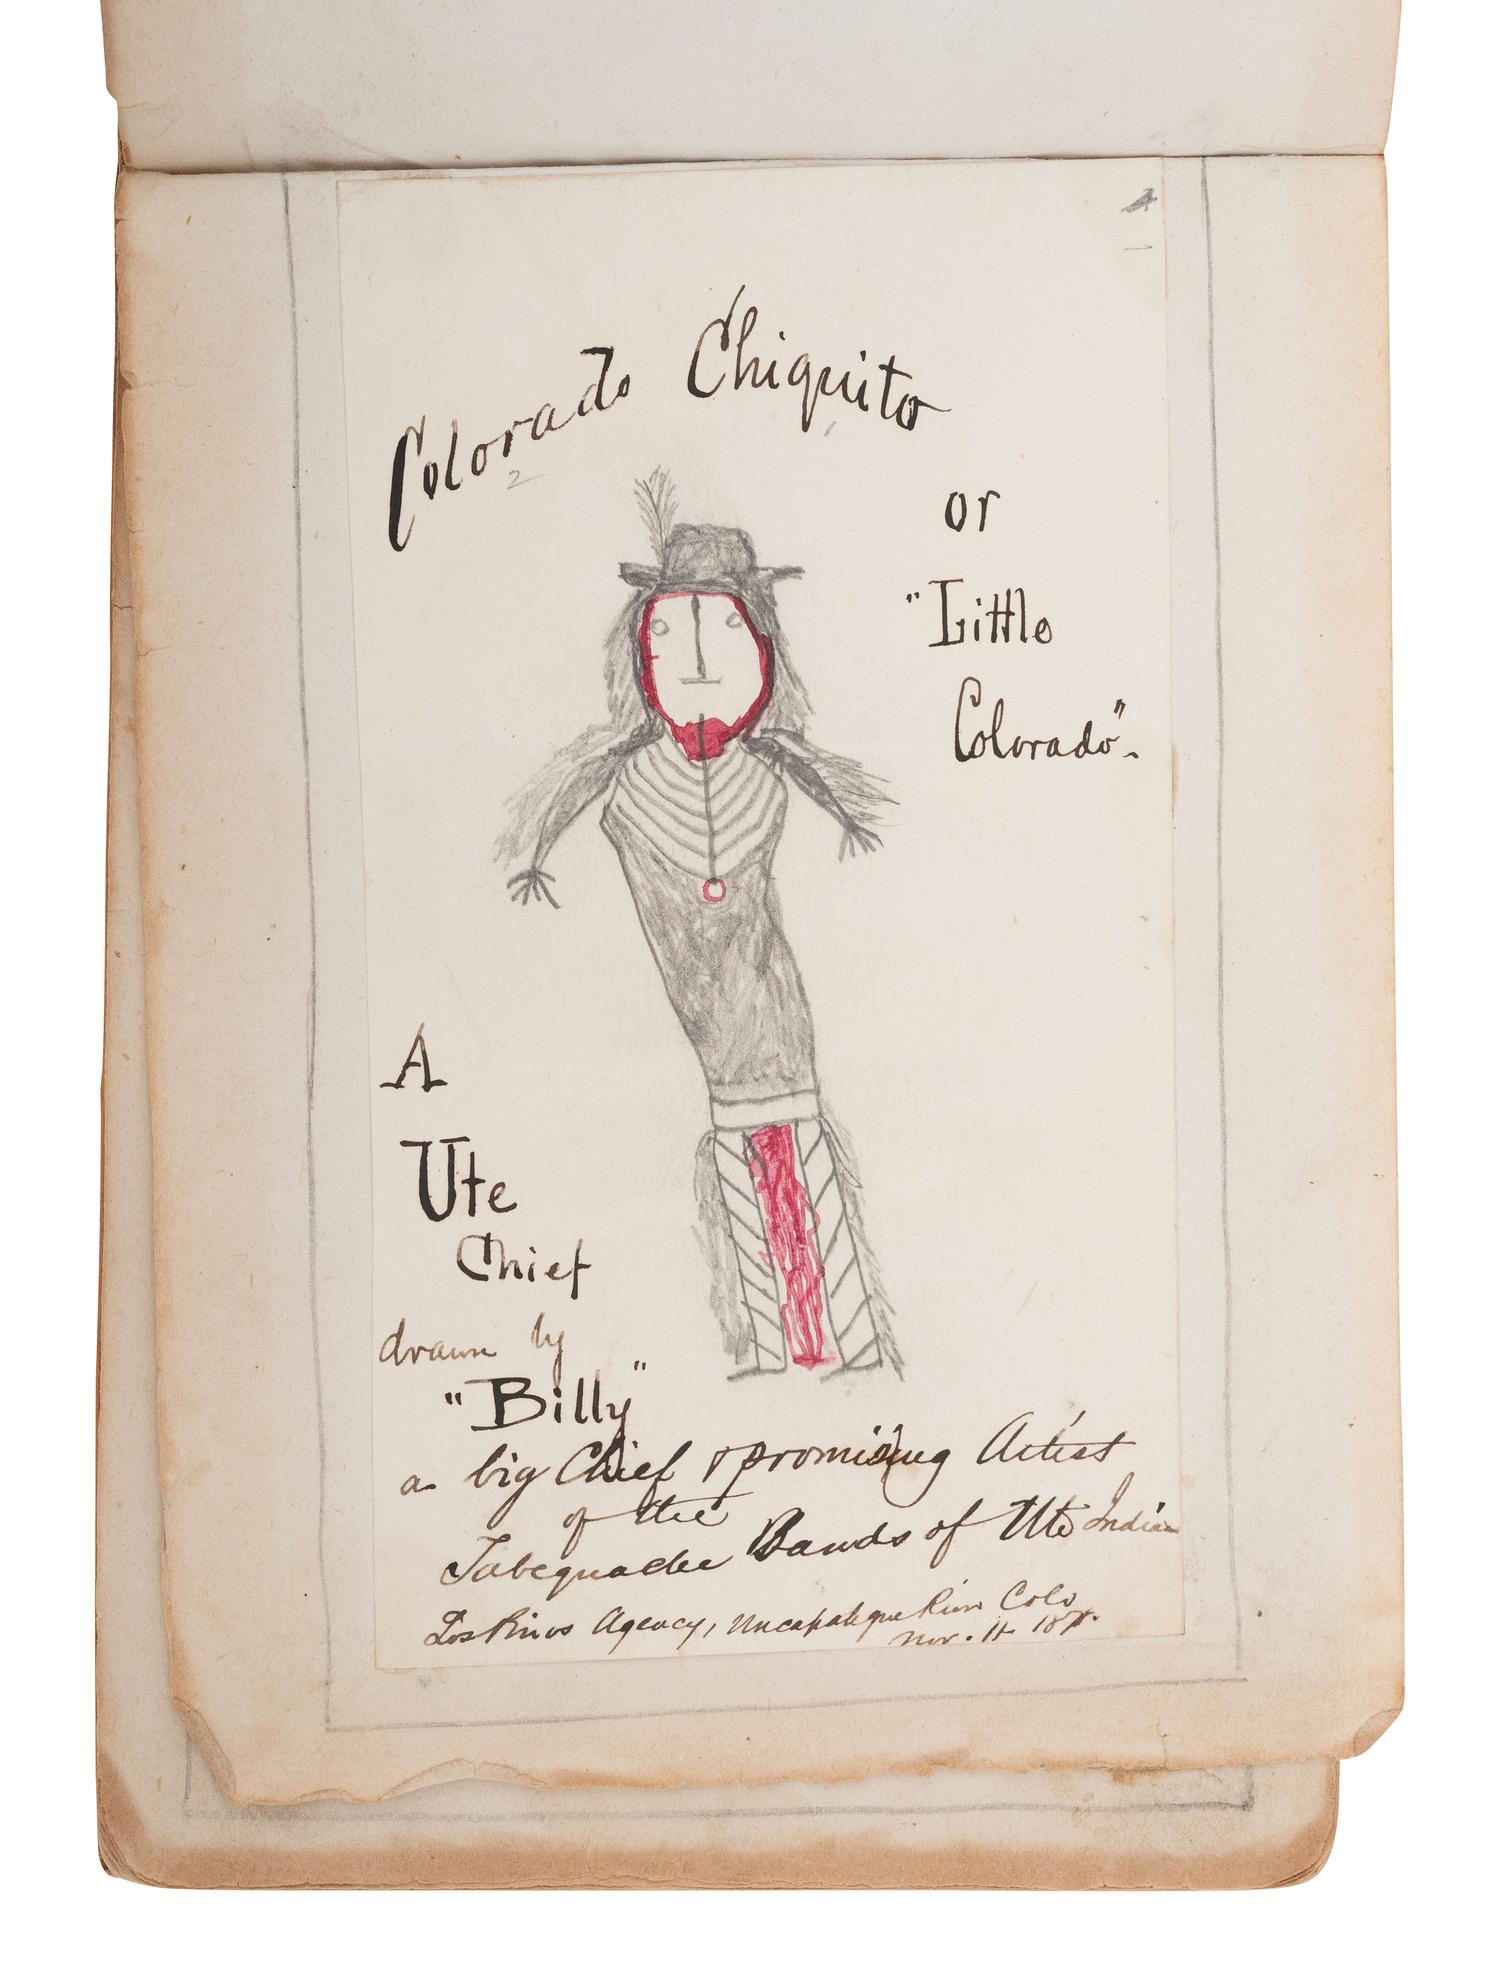 Colorado Chiquito
or
"Little
Colorado".
A
Ute
Chief
drawn by
"Billy"
a big Chief & promising Artist
of the
Tabequache Bands of Ute Indian
Los Pinos Agency, Uncapahgre River Colo
Nov. 11